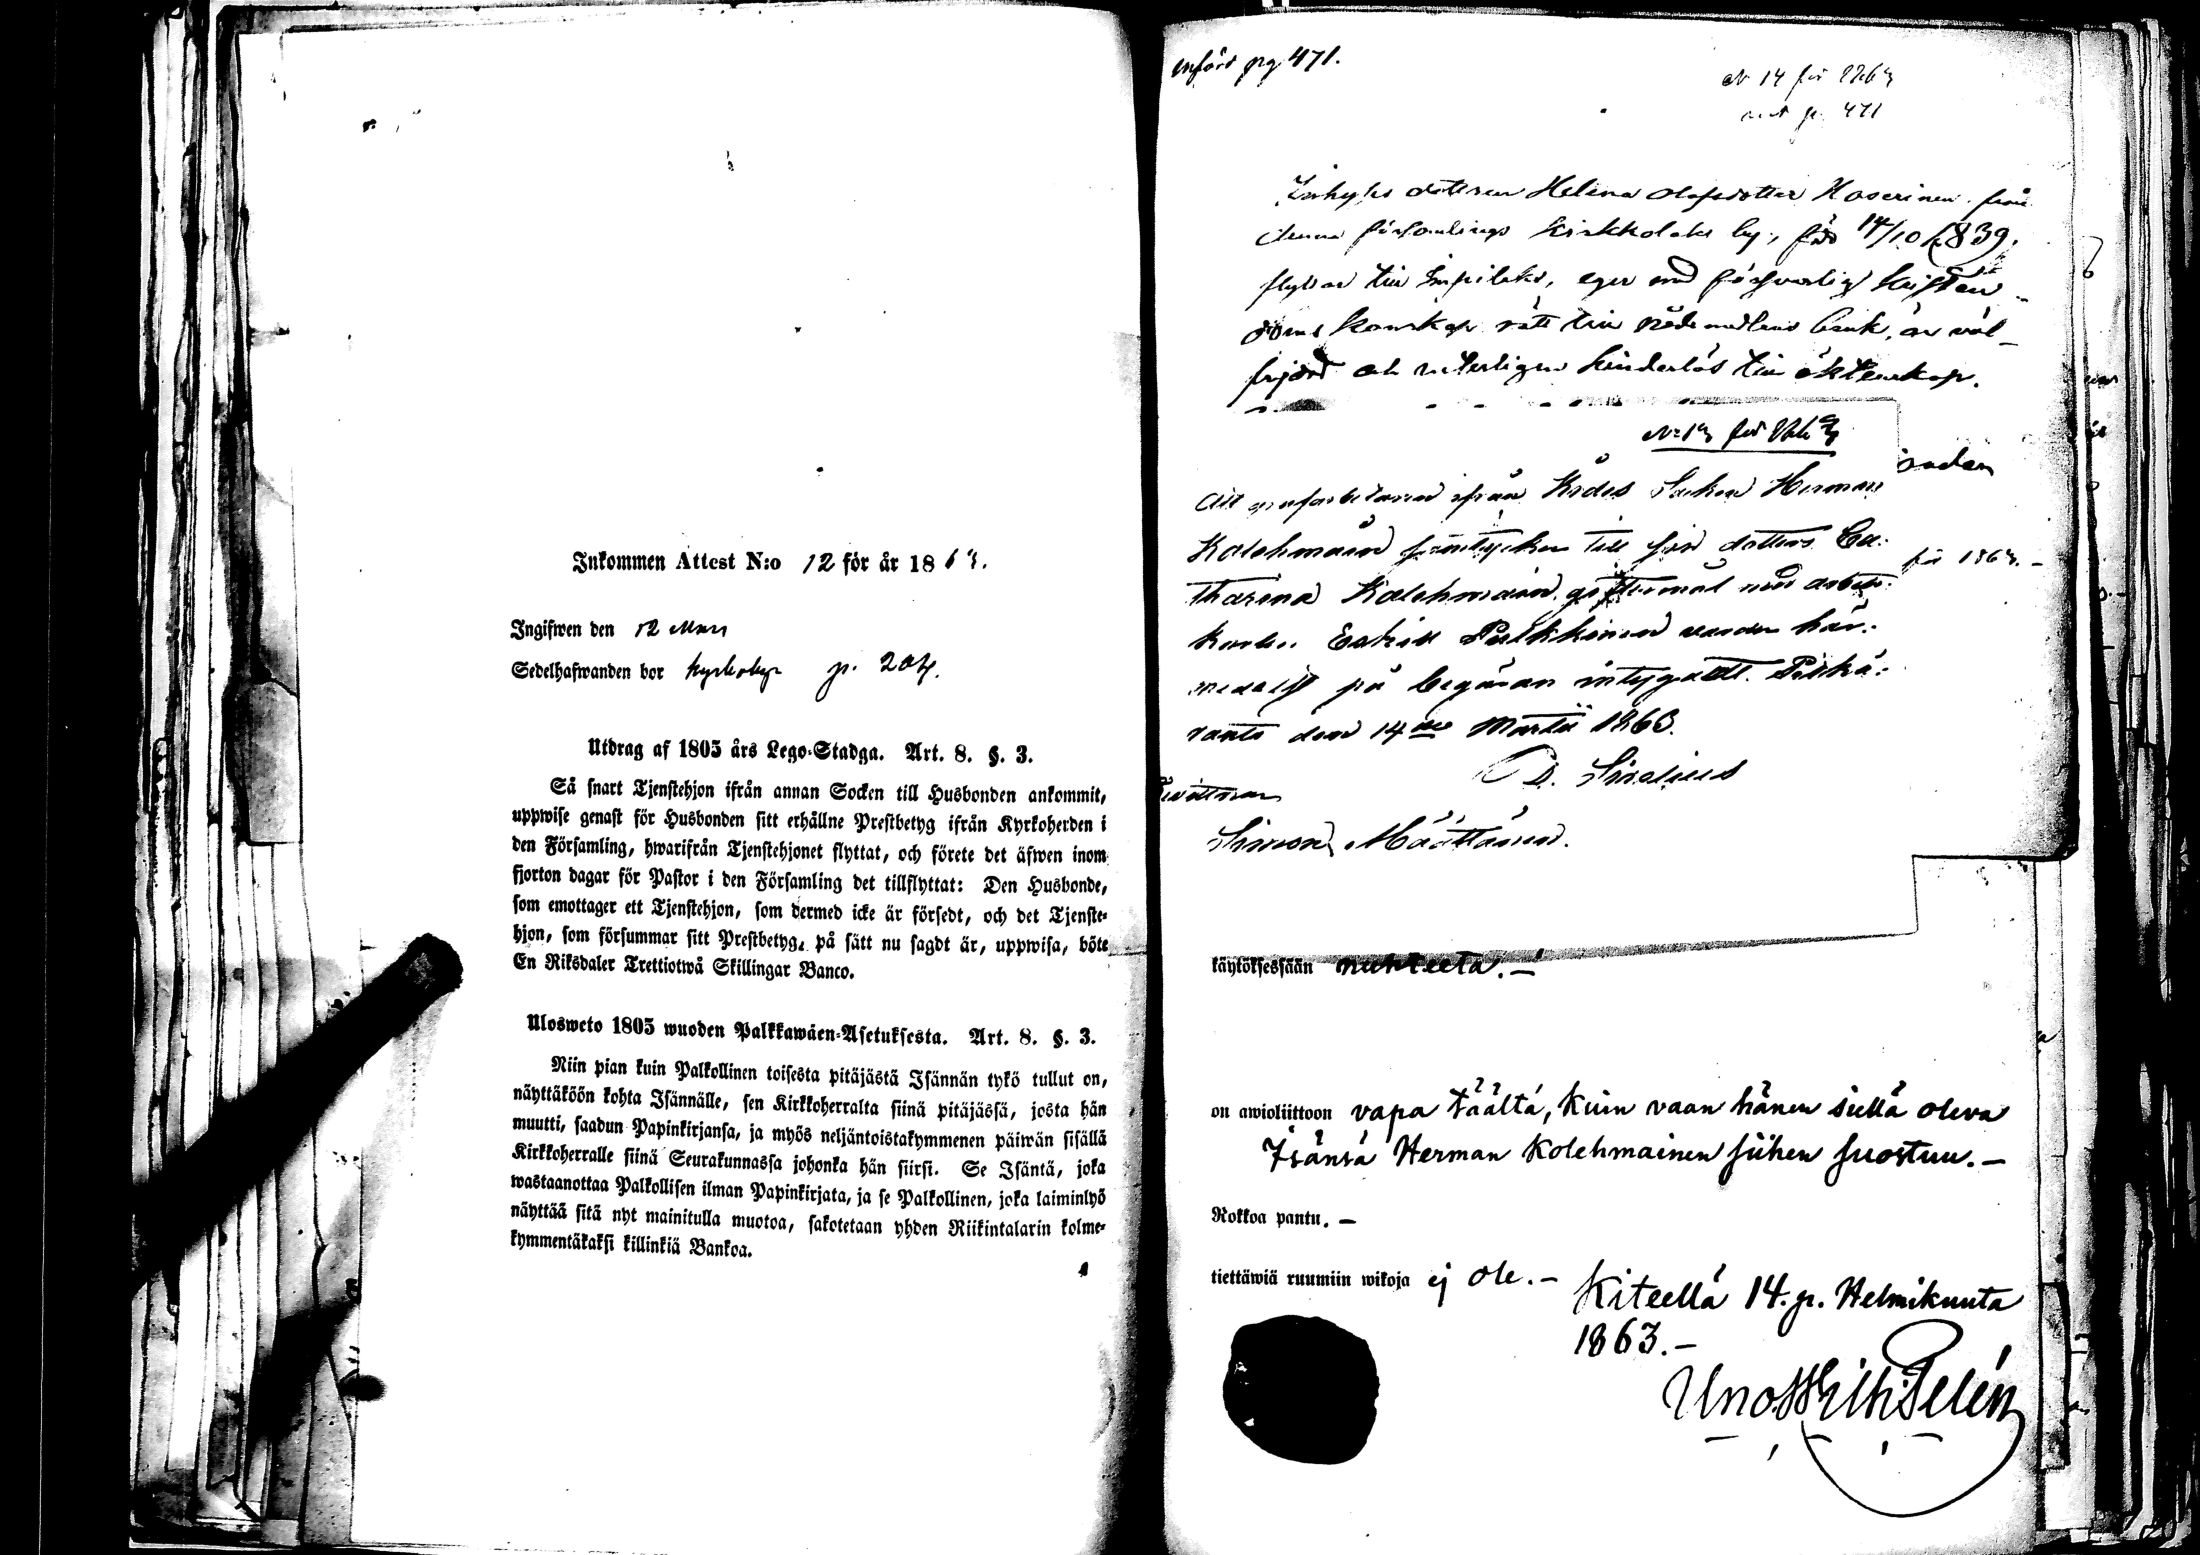 Inkommen Attest N:o 12 för år 1863.
Ingifwen den 12 Mars
Sedelhafwanden bor Kyrkoby p. 204.
Utdrag af 1805 års Lego-Stadga. Art. 8. §. 3.
Så snart Tjenstehjon ifrån annan Socken till Husbonden ankommit,
uppwise genast för Husbonden sitt erhållne Prestbetyg ifrån Kyrkoherden i
den Församling, hwarifrån Tjenstehjonet flyttat, och förete det äfwen inom
fjorton dagar för Pastor i den Församling det tillflyttat: Den Husbonde,
som emottager ett Tjenstehjon, som dermed icke är försedt, och det Tjenste-
hjon, som försummar sitt Prestbetyg, på sätt nu sagdt är, uppwisa, böte
En Riksdaler Trettiotwå Skillingar Banco.
Ulosweto 1805 wuoden Palkkawäen-Asetuksesta. Art. 8. §. 3.
Niin pian kuin Palkollinen toisesta pitäjästä Isännän tykö tullut on,
näyttäköön kohta Isännälle, sen Kirkkoherralta siinä pitäjässä, josta hän
muutti, saadun Papinkirjansa, ja myös neljäntoistakymmenen päiwän sisällä
Kirkkoherralle siinä Seurakunnassa johonka hän siirsi. Se Isäntä, joka
wastaanottaa Palkollisen ilman Papinkirjata, ja se Palkollinen, joka laiminlyö
näyttää sitä nyt mainitulla muotoa, sakotetaan yhden Riikintalarin kolme-
kymmentäkaksi killinkiä Bankoa.
införd pg 471.
N 14 för 1863
p. 471
Inhyses dottren Helena Olofsdotter Hoserinen från
denna församlings Kirkkolaks by, född 14/10 1839.
flyttar till Impilaks, eger med försvarlig Kristen-
doms kunskap rätt till nådemedlens bruk, är väl-
frejdad och veterligen hinderlös till äktenskap.
N:13 för 1863
Att grufarbetaren ifrån Kides Socken Herman
Kolehmain samtycker till sin dotters Ca-
tharina Kolehmain giftermål med arbets-
karlen Eskill Pulkkinen varder här-
medelst på begäran intygadt. Pitkä-
ranta den 14de Martii 1863.
D. Sirelius
Bevittnar
Simon Määttänen.
sedan
för 1863.-
käytöksessään nuhteeta.-
on awioliittoon vapa täältä, kuin vaan hänen siellä oleva
Isänsä Herman Kolehmainen siihen suostuu.-
Rokkoa pantu.-
tiettäwiä ruumiin wikoja ej ole.-
Kiteellä 14.p. Helmikuuta
1863.-